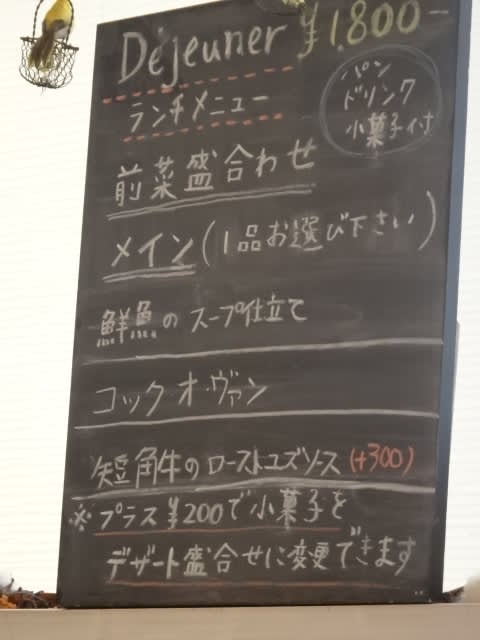 Déjeuner ¥1,800
ランチメニュー
パン
ドリンク
小菓子付
前菜盛合わせ
メイン(1品お選び下さい)
鮮魚のスープ仕立て
コック・オ・ヴァン
短角牛のローストユズソース(+300)
※プラス¥200で小菓子を
デザート盛合せに変更できます